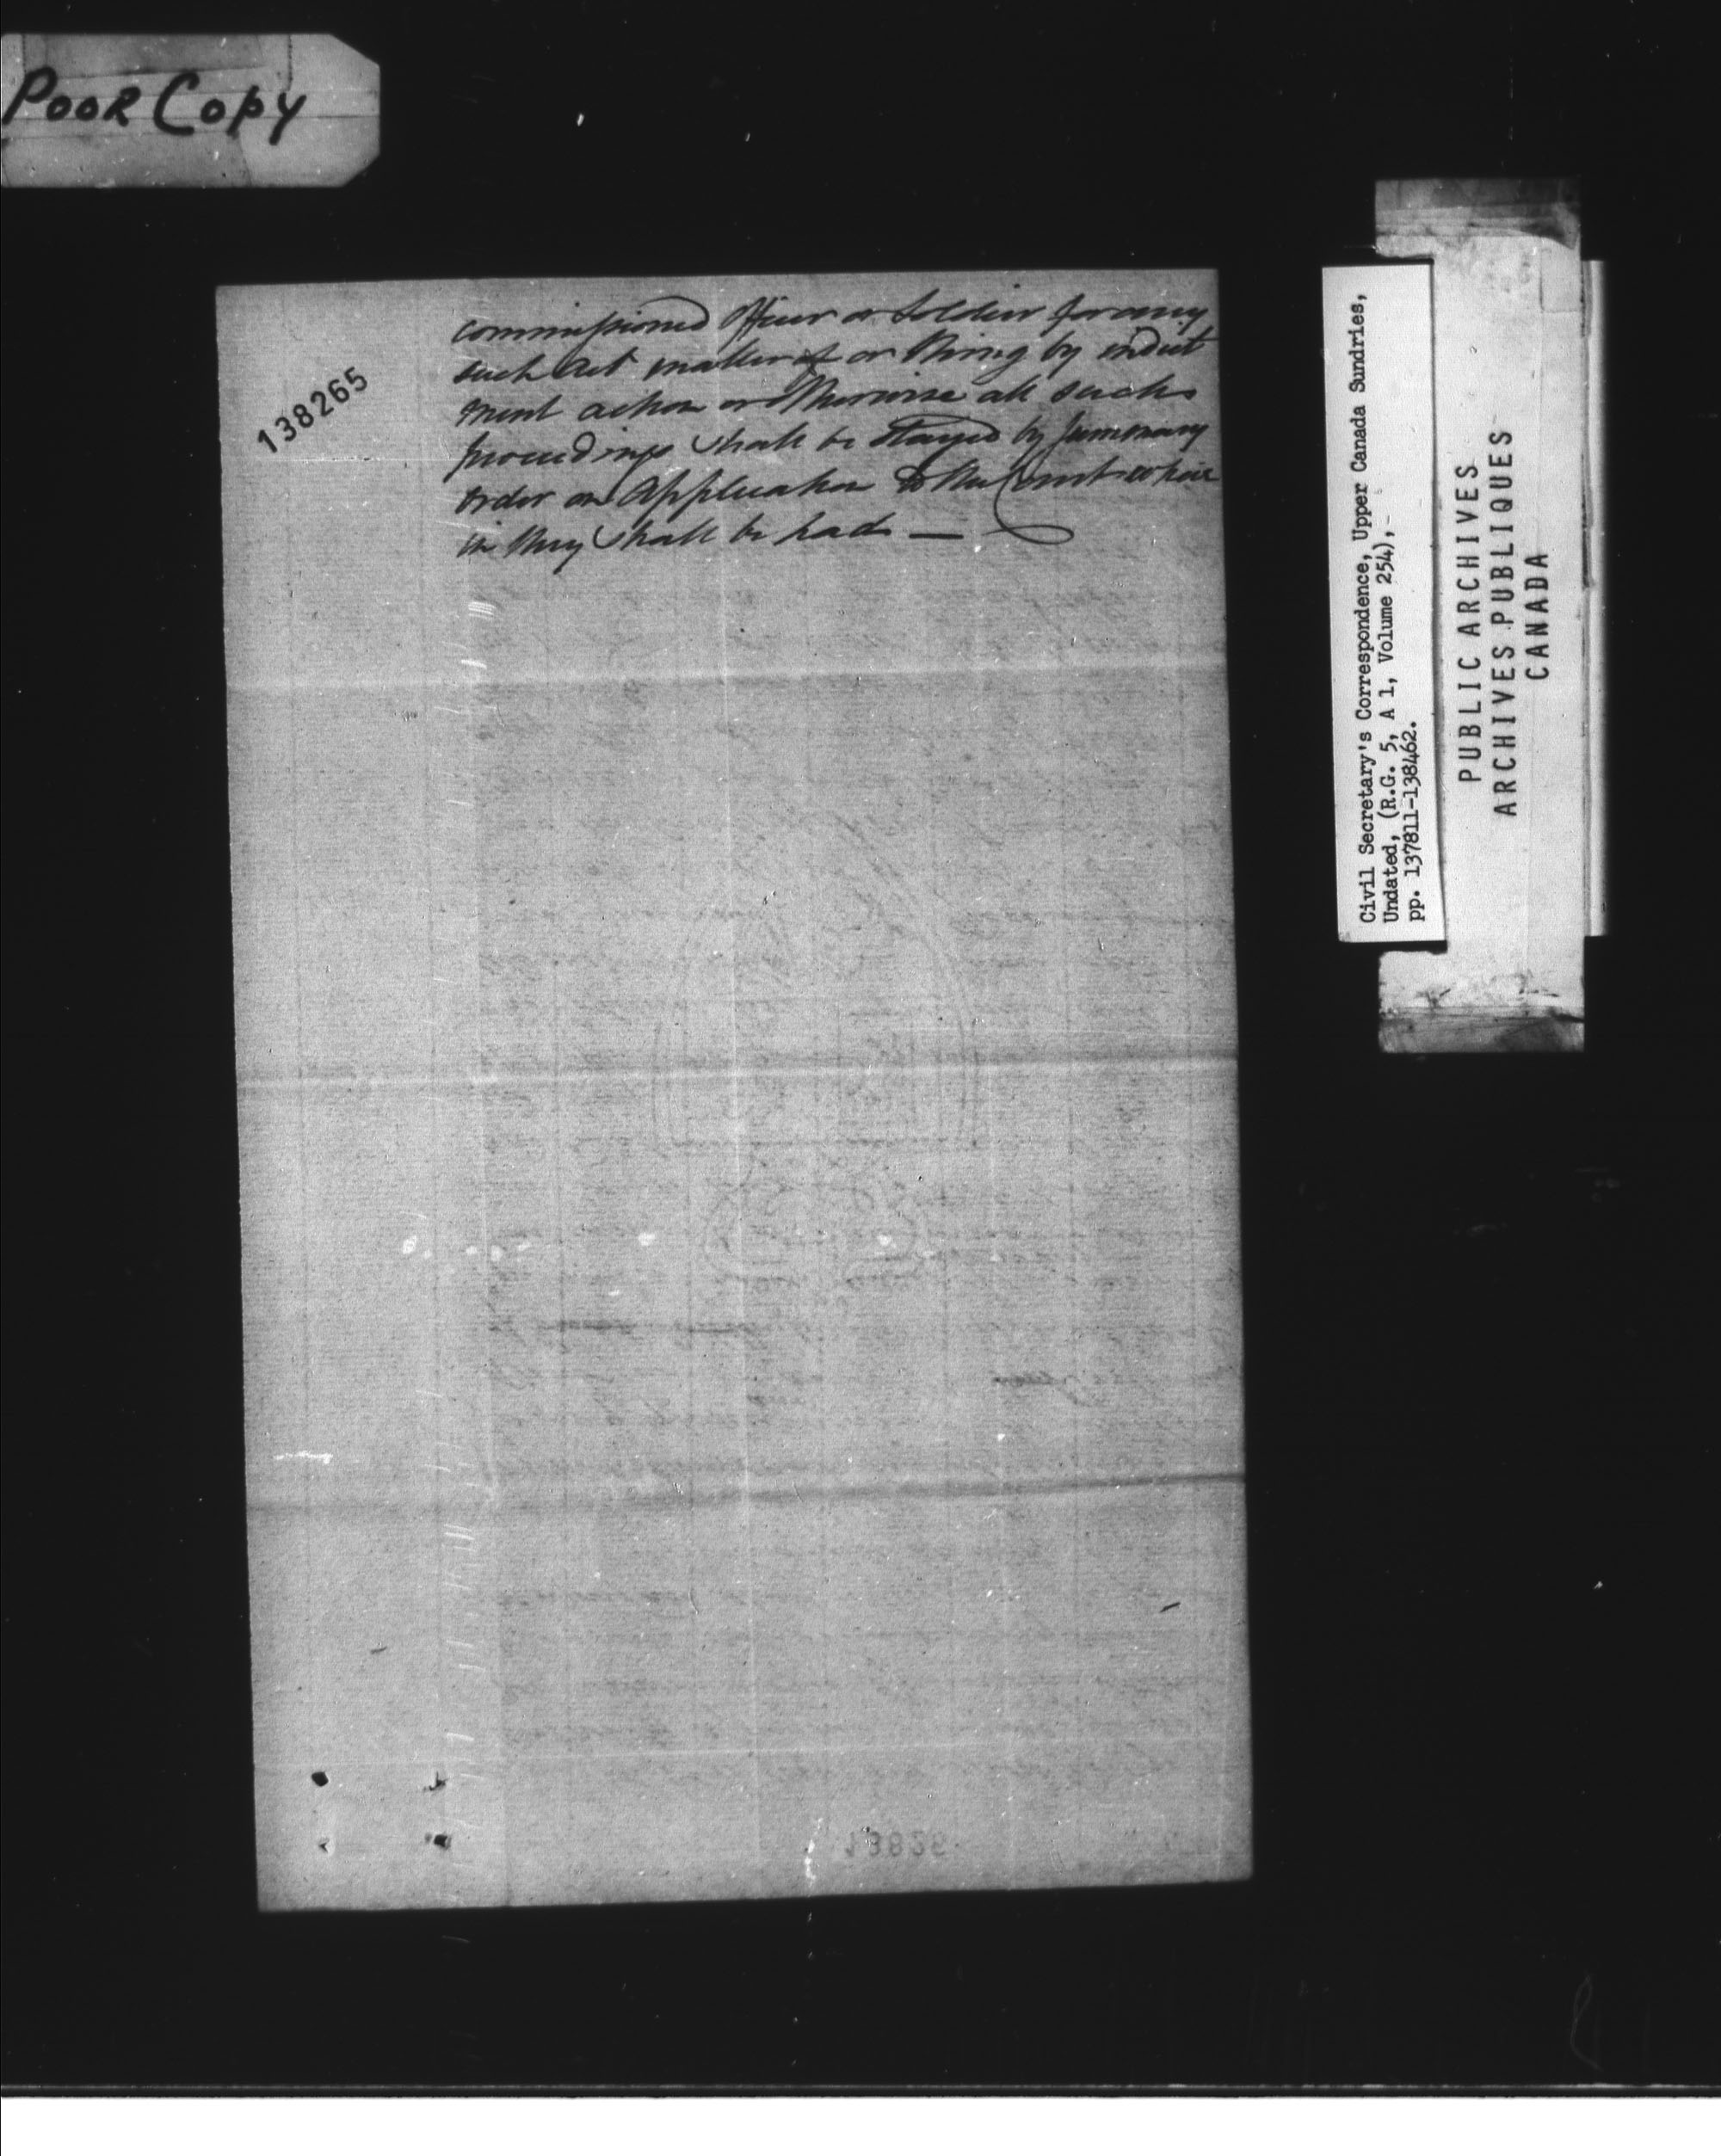 Poor Copy
138265
commissioned Officer or Soldier for any
such Act matter or thing by indict
ment action or otherwise all such
proceedings shall be stayed by summary
order on Application to the Court where
in they shall be had —
Civil Secretary's Correspondence, Upper Canada Sundries,
Undated, (R.G. 5, A 1, Volume 254),-
pp. 137811-138462.
PUBLIC ARCHIVES
ARCHIVES PUBLIQUES
CANADA